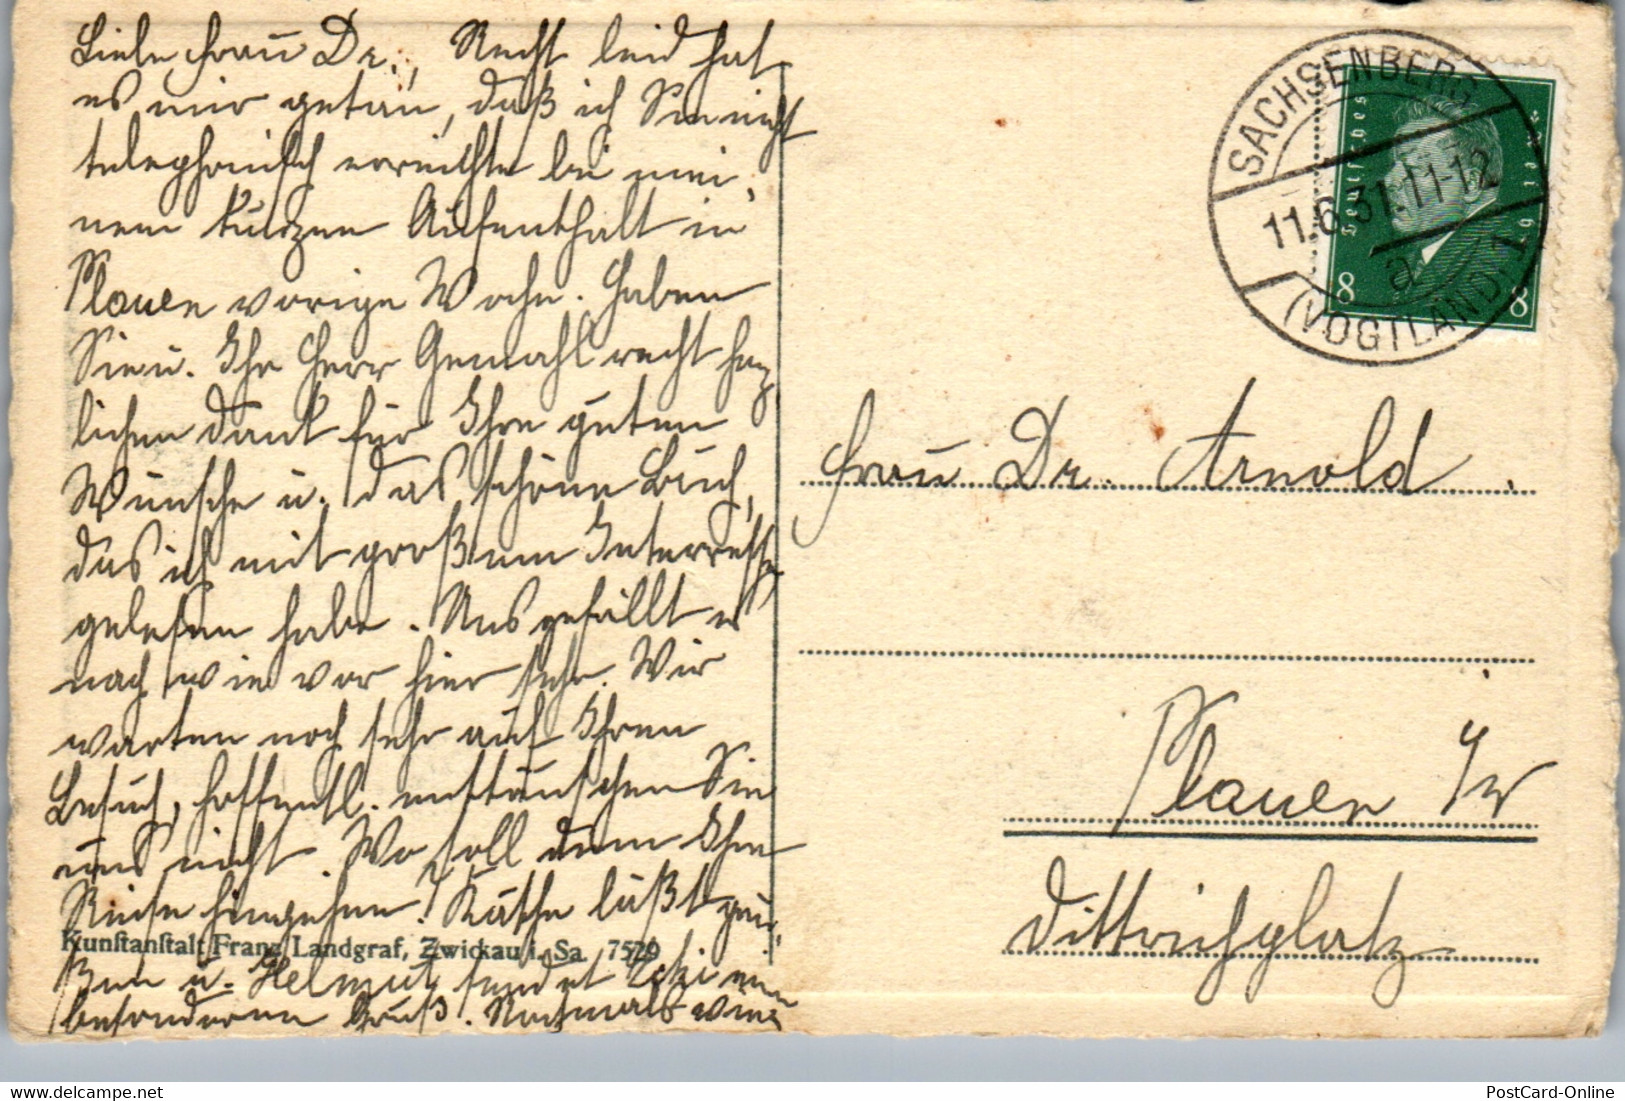 Liebe Frau Dr., Recht leid hat
es mir getan, daß ich Sie nicht
telephonisch erreichte bei mei-
nem kurzen Aufenthalt in
Plauen vorige Woche. Haben
Sie u. Ihr Herr Gemahl recht herz-
lichen Dank für Ihre guten
Wünsche u. das schöne Buch,
das ich mit großem Interesse
gelesen habe. Uns gefällt es
nach wie vor hier sehr. Wir
warten noch sehr auf Ihren
Besuch, hoffentl. enttäuschen Sie
uns nicht. Wo soll denn Ihre
Reise hingehen? Käthe läßt grü-
ßen u. Helmut sendet Ecki einen
besonderen Gruß. Nochmals
Kunstanstalt Franz Landgraf, Zwickau i. Sa. 7529
SACHSENBERG
11.6.31.11-12
a
(VOGTLAND) 1
Deutsches Reich
8 8
Frau Dr. Arnold.
Plauen i/V
Dittrichplatz
delcampe.net
PostCard-Online